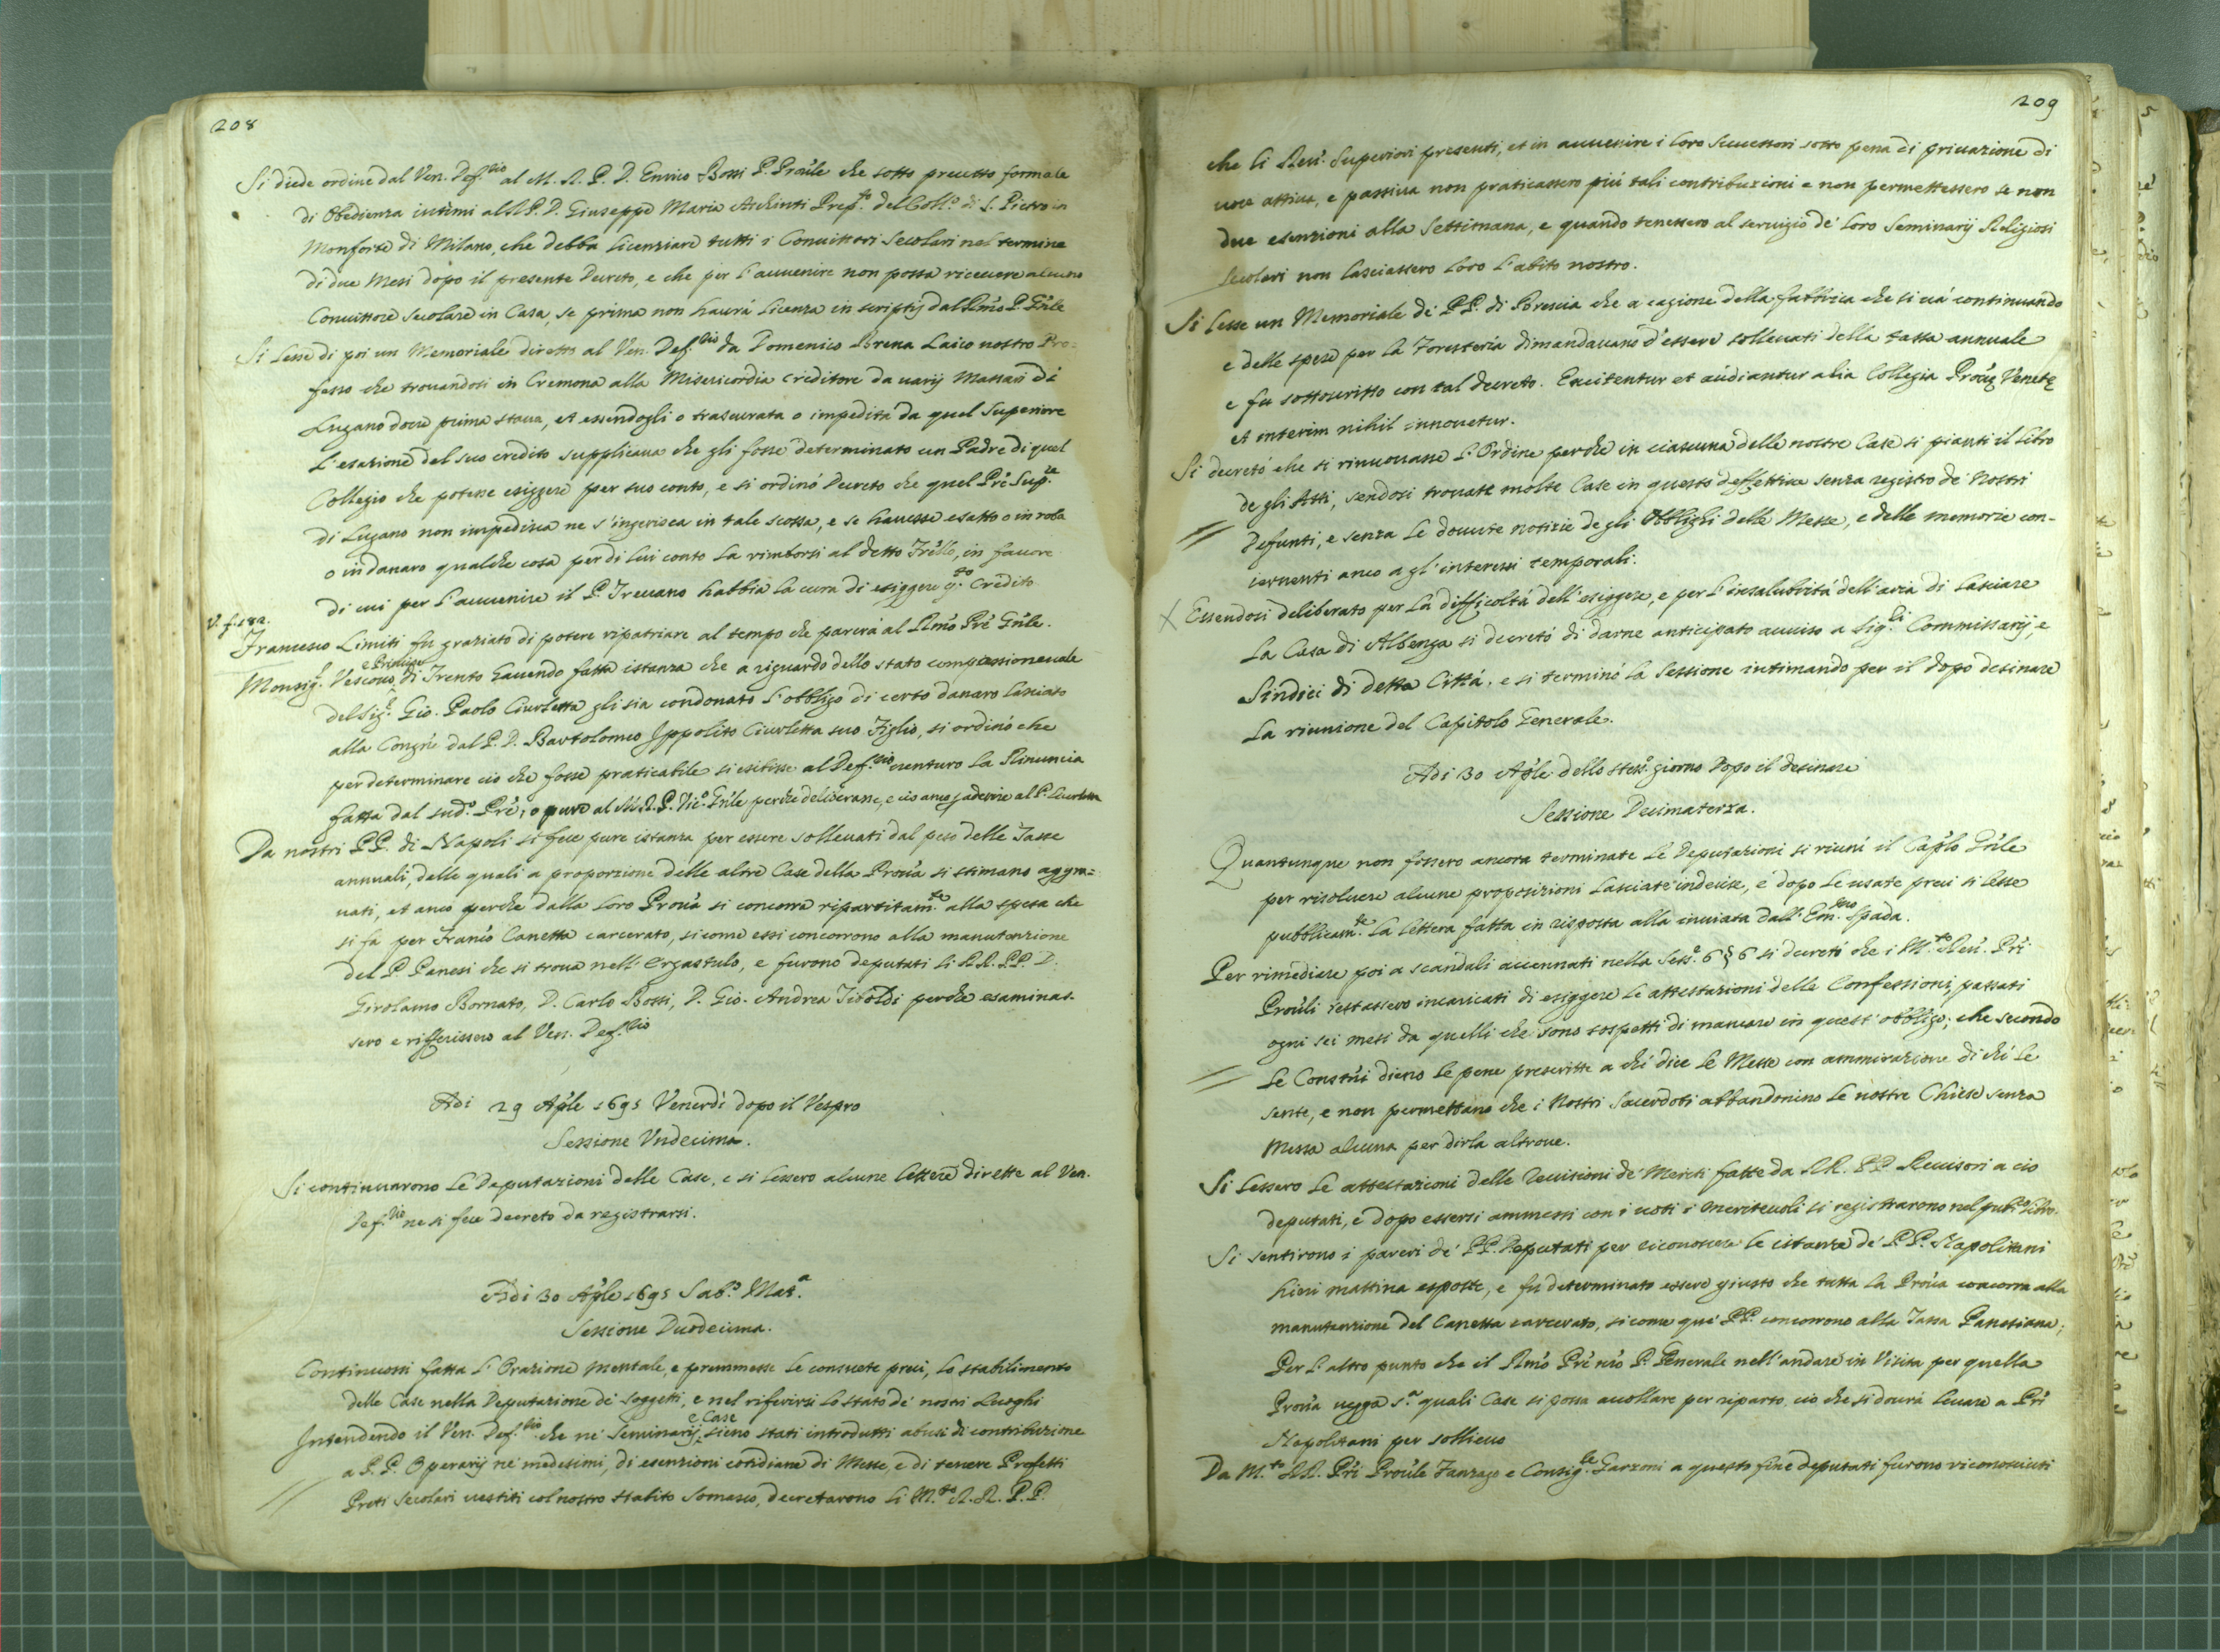 208
Si diede ordine dal Ven. Def.rio al M. R. P. D. Enrico Bossi P. Prãle che sotto precetto formale
di Obedienza intimi al R P. D. Giuseppe Maria Archinti Prep.to del Coll.o di S. Pietro in
Monforte di Milano, che debba licenziare tutti i Convittori secolari nel termine
di due Mesi dopo il presente Decreto, e che per l'avvenire non possa ricevere alcuno
Convittore secolare in Casa, se prima non haurà licenza in scriptis dal Rmo P. Gñle
Si lesse di poi un Memoriale diretto al Ven. Def.rio da Domenico Laico nostro Pro=
fesso che trovandosi in Cremona alla Misericordia creditore da varij Massari di
Lugano dove prima stava, et essendogli o trascurata o impedita da quel Superiore
l'esazione del suo credito supplicava che gli fosse determinato un Padre di quel
Collegio che potesse esiggere per suo conto, e si ordinò Decreto che quel Prê Sup.re
di Lugano non impedisca ne s'ingerisca in tale scossa, e se havesse esatto o in roba
o in danaro qualche cosa per di lui conto la rimborsi al detto Frêllo, in favore
di cui per l'avvenire il P. Trevano habbia la cura di esiggere q.to Credito
V. f. 182.
Francesco Limiti fu graziato di potere ripatriare al tempo che parerà al Rmo Prê Gñle.
e Principe
Monsig.r Vescovo di Trento havendo fatta istanza che a riguardo dello stato compassionevole
del Sig.r Gio. Paolo Ciurletta gli sia condonato l'obbligo di certo danaro lasciato
alla Congñe dal P. D. Bartolomeo Ippolito Ciurletta suo Figlio, si ordinò che
per determinare ciò che fosse praticabile si esibisse al Def.rio venturo la Rinuncia
fatta dal sud.o Prê, o pure al M. R. P. Vic.o Gñle perche deliberasse, e cio anco
Da nostri PP. di Napoli si fece pure istanza per essere sollevati dal peso delle Tasse
annuali, delle quali a proporzione delle altre Case della Prova si stimano aggra=
vati, et anco perche dalla loro Prova si concorra ripartitam.te alla spesa che
si fa per Franco Canetta carcerato, sicome essi concorrono alla manutenzione
del P. Panesi che si trova nell'Ergastulo, e furono deputati li RR. PP. D.
Girolamo Bornato, D. Carlo Bossi, D. Gio. Andrea Tiboldi perche esaminas-
sero e rifferissero al Ven. Def.rio
Adi 29 Aple 1695 Venerdì dopo il Vespro
Sessione Undecima.
Si continuarono le Deputazioni delle Case, e si lessero alcune lettere dirette al Ven.
Def.rio ne si fece decreto da registrarsi.
Adi 30 Aple 1695 Sab.o Mat.a
Sessione Duodecima.
Continuossi fatta l'Orazione mentale, e premmesse le consuete preci, lo stabilimento
delle Case nella Deputazione de' soggetti, e nel riferirsi lo stato de' nostri Luoghi
e Case
Intendendo il Ven. Def.rio che ne' Seminarij sieno stati introdutti abusi di contribuzione
a P.P. Operarij ne' medesimi, di esenzioni cotidiane di Messe, e di tenere Prefetti
Preti secolari vestiti col nostro Habito Somasco, decretarono li M.to R. R. P. P.
209
che li Reu. Superiori presenti, et in avvenire i loro Successori sotto pena di privazione di
voce attiva, e passiva non praticassero più tali contribuzioni e non permettessero se non
due esenzioni alla Settimana, e quando tenessero al servigio de' loro Seminarij Religiosi
secolari non lasciassero loro l'abito nostro.
Si lesse un Memoriale de' PP. di Brescia che a cagione della fabbrica che si và continuando
e delle spese per la Foresteria dimandavano d'essere sollevati della tassa annuale
e fu sottoscritto con tal decreto. Excitentur et audiantur alia Collegia Prove Venete
et interim nihil innovetur.
Si decretò che si rinuovasse l'Ordine perche in ciascuna delle nostre Case si pianti il libro
de gli Atti, sendosi trovate molte Case in questo deffettive senza registro de' Nostri
Defunti, e senza le dovute notizie de gli Obblighi delle Messe, e delle memorie con-
cernenti anco a gl'interessi temporali.
X Essendosi deliberato per la difficoltà dell'esiggere, e per l'insalubrità dell'aria di lasciare
la Casa di Albenga si decretò di darne anticipato avviso a Sig.ri Commissarij, e
Sindici di detta Città. e si terminò la Sessione intimando per il dopo desinare
la riunione del Capitolo Generale.
Adi 30 Aple dello stess.o giorno Dopo il desinare
Sessione Decimaterza.
Quantunque non fossero ancora terminate le Deputazioni si riunì il Caplo Gñle
per risolvere alcune proposizioni lasciate indecise, e dopo le usate preci si lesse
pubblicam.te la lettera fatta in risposta alla inviata dall'Em.mo Spada.
Per rimediare poi a scandali accennati nella Sess.e 6 § 6 si decretò che i M.to Reu. Pri
Provli restassero incaricati di esiggere le attestazioni delle Confessioni, passati
ogni sei mesi da quelli che sono sospetti di mancare in quest'obbligo; che secondo
le Constni dieno le pene prescritte a chi dice le Messe con ammirazione di chi le
sente, e non permettano che i Nostri Sacerdoti abbandonino le nostre Chiese senza
Messa alcuna per dirla altrove.
Si lessero le attestazioni delle revisioni de' Meriti fatte da RR. PP Revisori a cio
deputati, e dopo essersi ammessi con i voti i meritevoli si registrarono nel pub.o libro.
Si sentirono i pareri de' PP. Deputati per riconoscere le istanze de' P.P. Napolitani
hieri mattina esposte, e fu determinato essere giusto che tutta la Prova concorra alla
manutenzione del Canetta carcerato, sicome que' PP. concorrono alla Tassa Panesiana;
Per l'altro punto che il Rmo Prê nro P. Generale nell'andare in Visita per quella
Prova vegga quali Case si possa accollare per riparto ciò che si dovrà levare a Pri
Napolitani per sollievo
Da M.to RR. Pri Provle Fanzago e Consig.re Garzoni a questo fine deputati furono riconosciuti